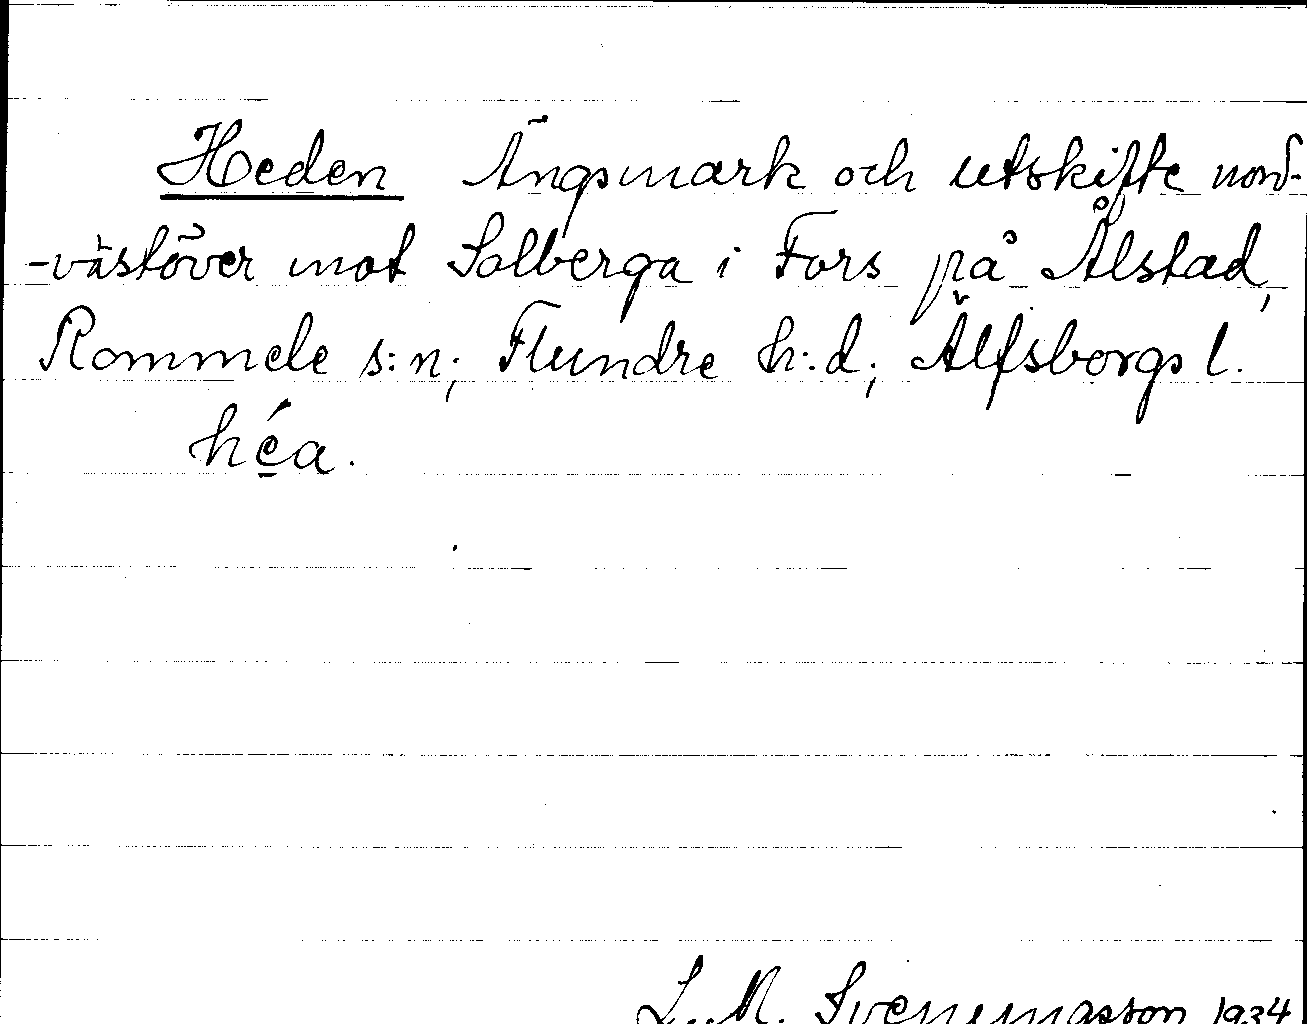 Heden Ängsmark och utskifte nord-
-västöver mot Solberga i Fors på Ålstad,
Rommele s:n; Flundre h:d; Älfsborgs l.
hé̱a.
L. M. Svenungsson 1934